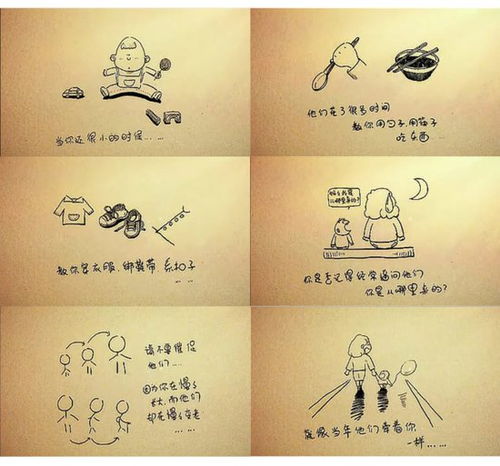 当你还很小的时候……
他们花了很多时间
教你用勺子,用筷子
吃东西
教你穿衣服 绑鞋带 系扣子
……
妈妈我是
从哪里来的?
你是否记得经常逼问他们
你是从哪里来的?
请不要催促
他们……
因为你在慢慢
长大,而他们
却在慢慢变老
……
就像当年他们牵着你
一样……